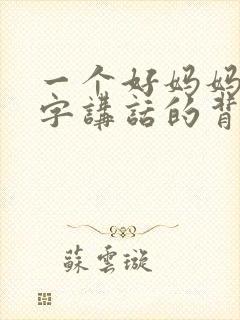 一个好妈妈
字講話的背
蘇雲璇